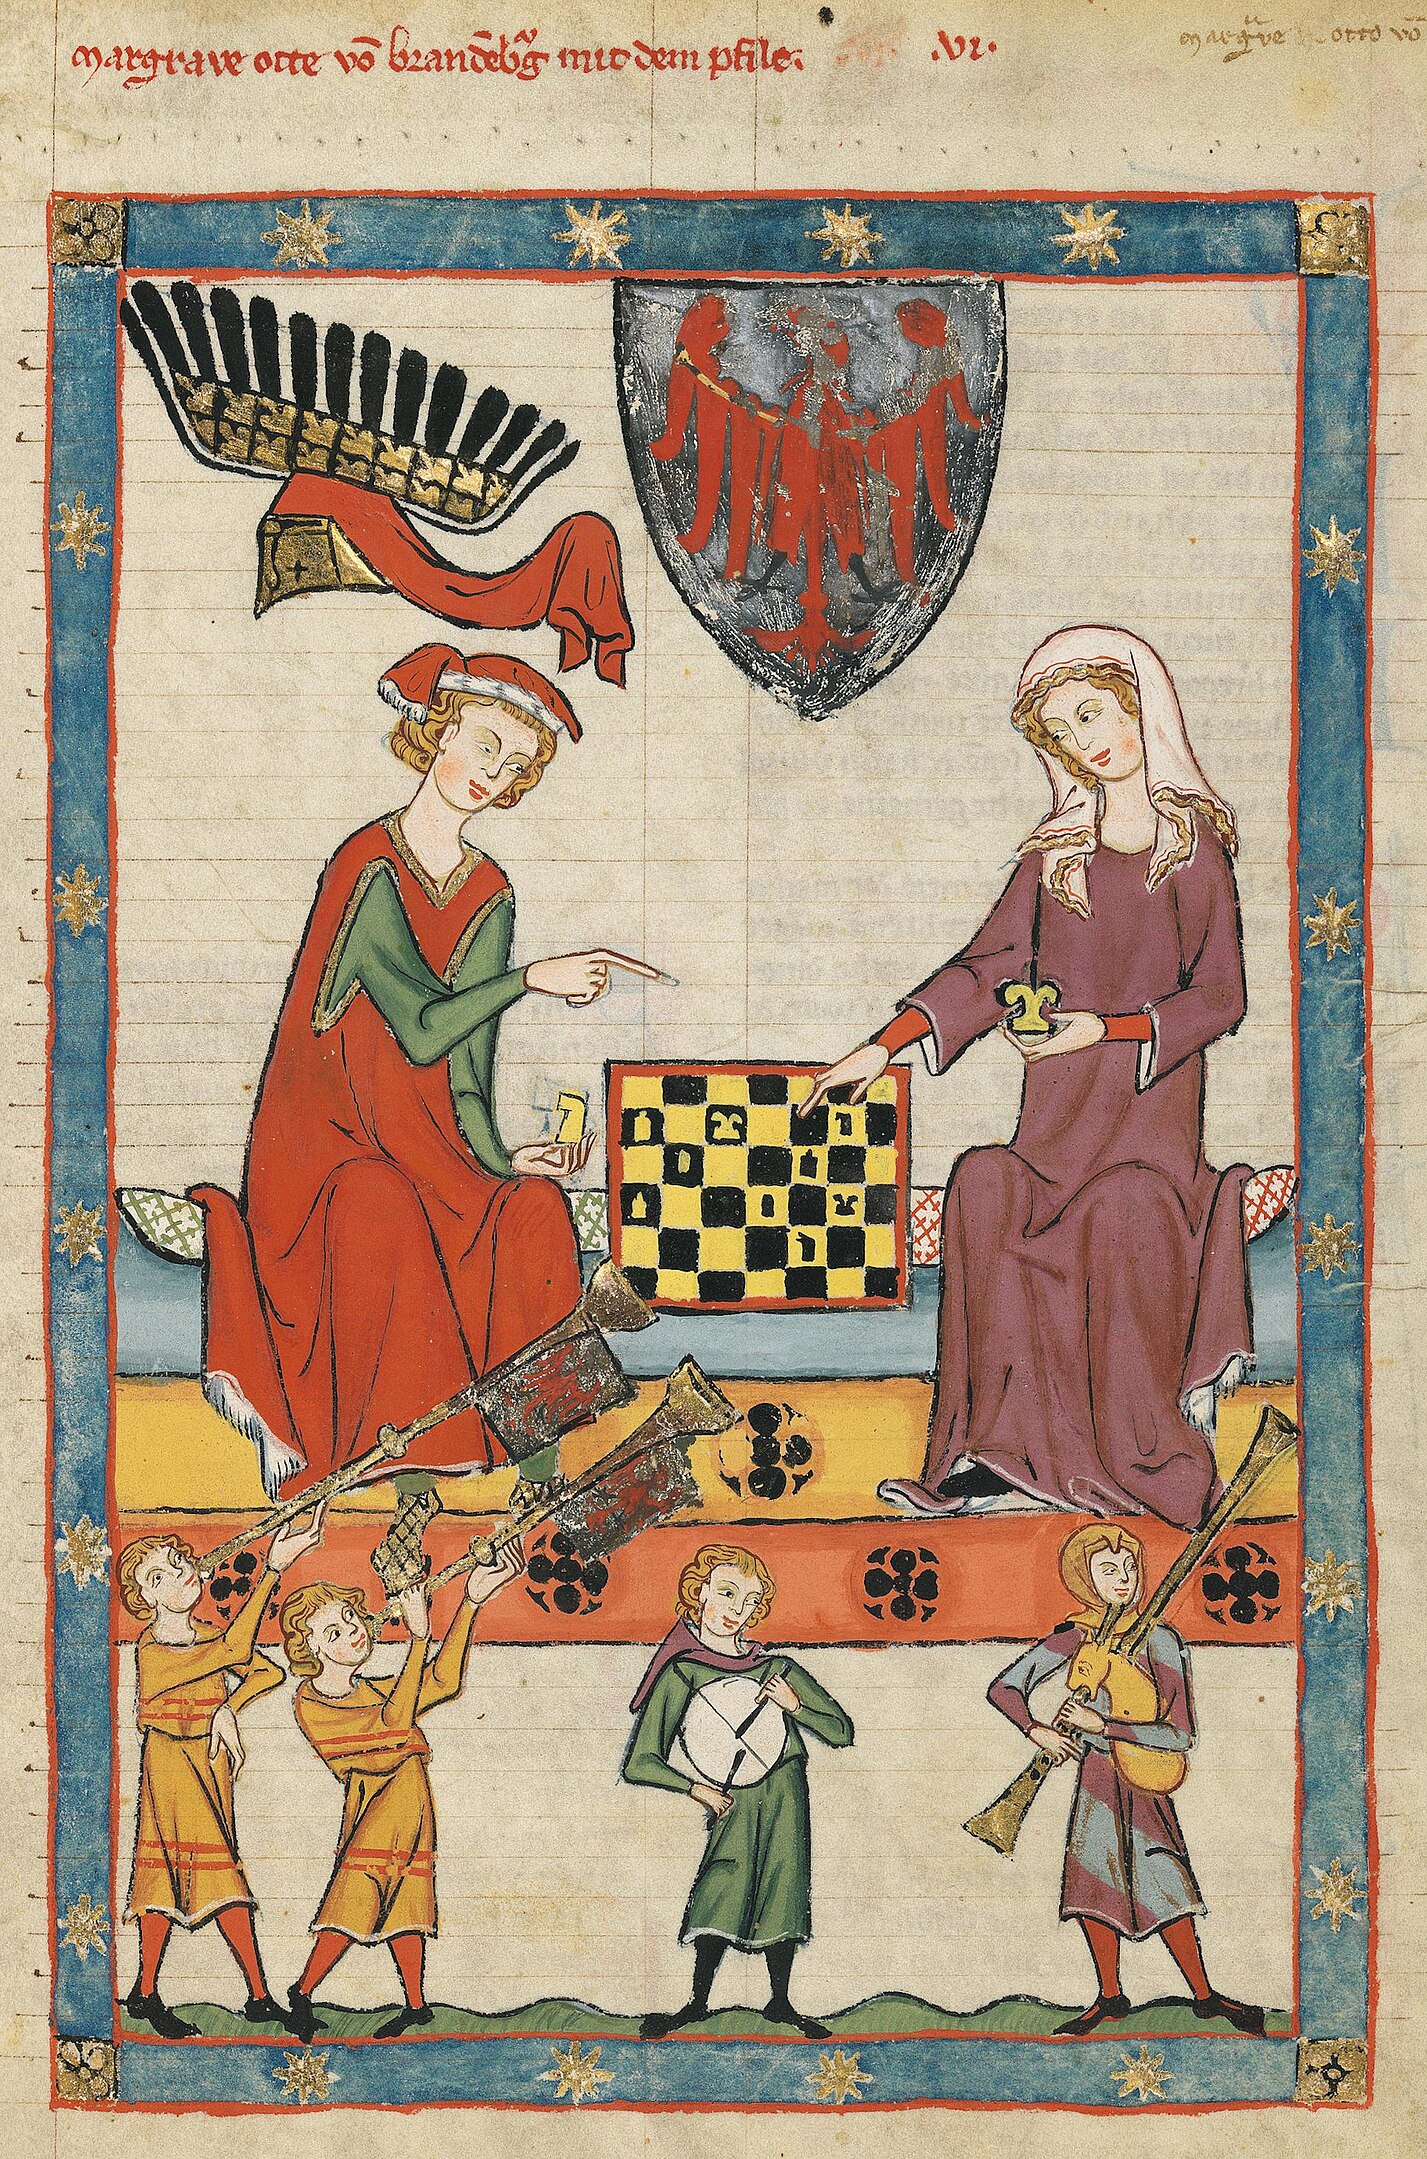 Margrave otte vō brandēbg᷒ mit dem pfile.
.VI.
margᵃve otto vō